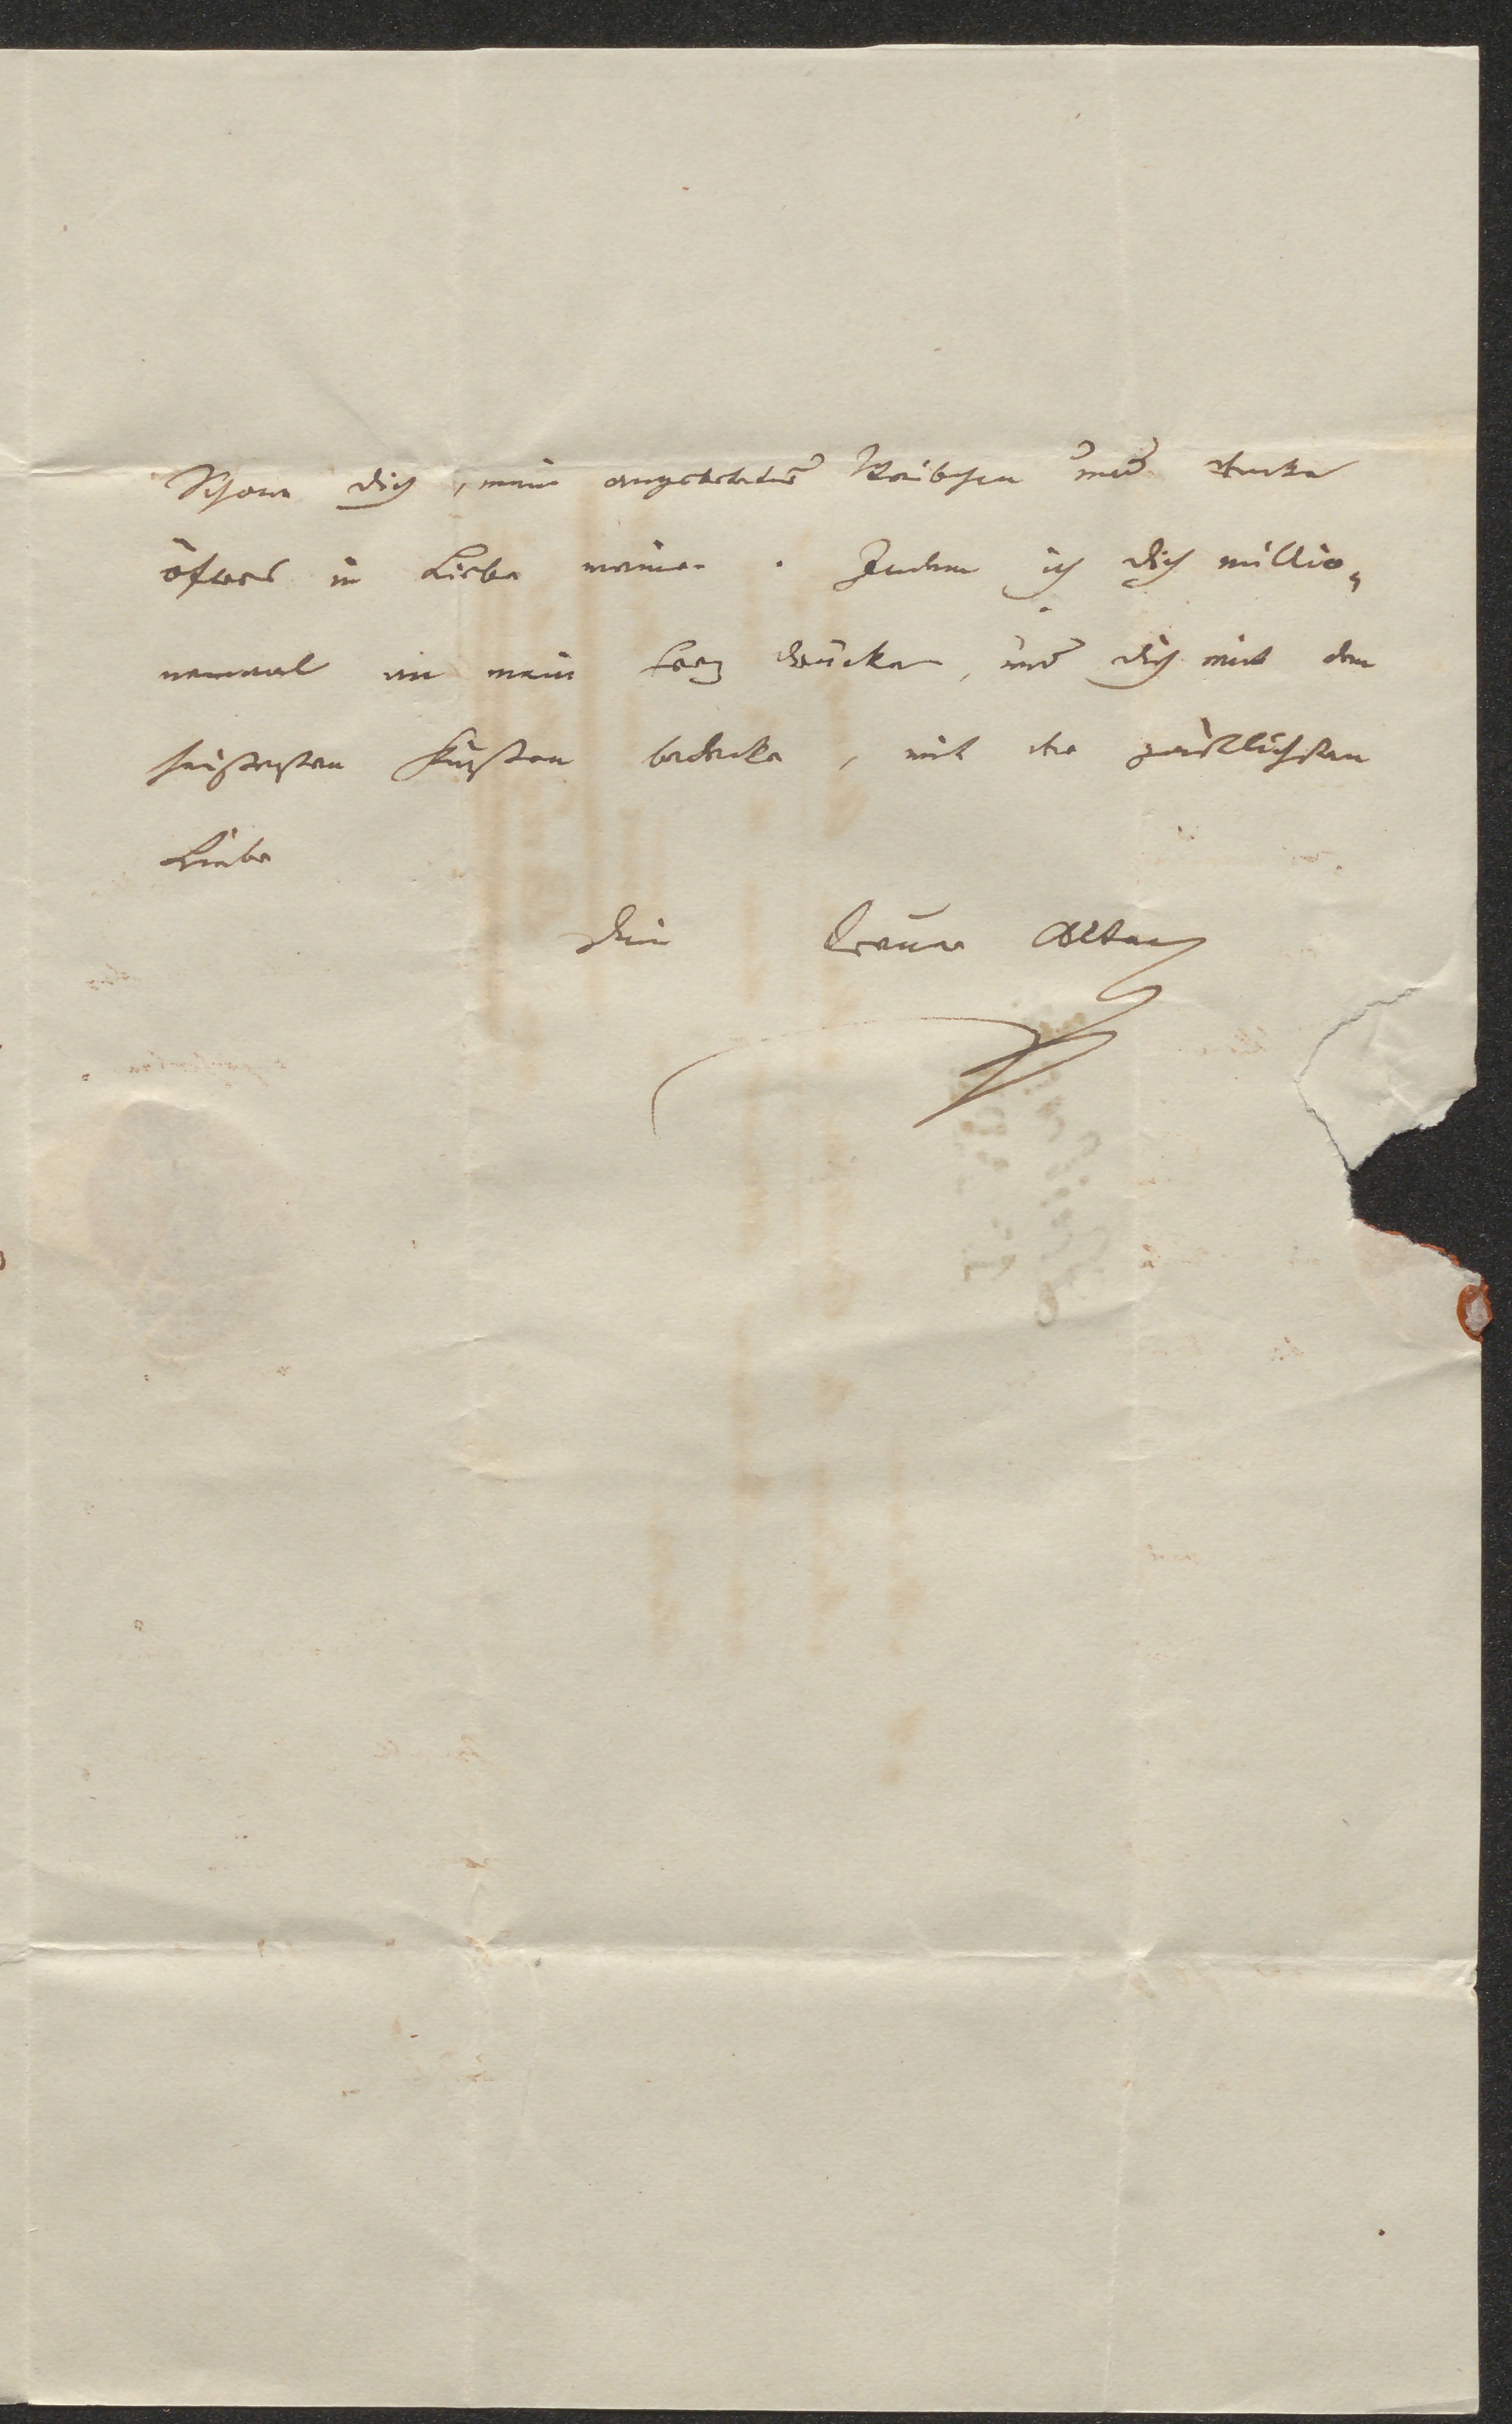 Schone dich, mein angebetetes Weibchen und denke
öfters in Liebe meiner. Indem ich dich millio„
nenmal an mein Herz drücke, und dich mit den
heißesten Küßen bedecke, mit der zärtlichsten
Liebe
Dein treuer Alter